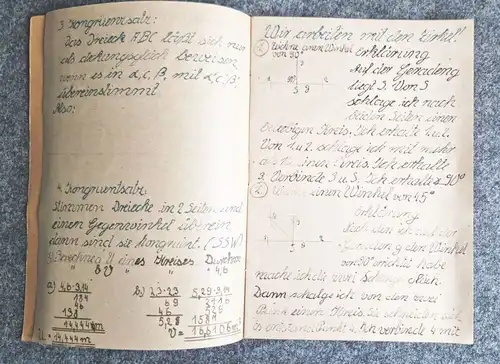 3. Kongruenzsatz:
Das Dreieck ABC läßt sich nur
als deckungsgleich beweisen
wenn es in α, c, β, mit
übereinstimmt.
Also:
4. Kongruentsatz.
Stimmen Dreiecke in 2 Seiten und
einen Gegenwinkel überein
dann sind sie kongruent. (SSW)
eines Kreises
4,6
a) 4,6·3,14
184
46
138
14,444 m
U = 14,444 m
b) 2,3·2,3
69
46
5,29
5,29·3,14
2116
529
1587
Wir arbeiten mit dem Zirkel!
1) Zeichne einen Winkel
von 90°
Erklärung
Auf der Geraden g
liegt S. Von S
schlage ich nach
beiden Seiten einen
beliebigen Kreis. Ich erhalte 1 u. 2.
Von 1 u. 2 schlage ich mit mehr
einen Kreis. Ich erhalte
3. Verbinde 3 u. S. ich erhalte ∢ 90°
2) einen Winkel von 45°
Erklärung
Nach den ich auf der
Geraden g den Winkel
von 90 errichtet habe
mache ich die zwei
Dann schlage ich von den zwei
einen Kreis
es entstand Punkt 4. Ich verbinde 4 mit